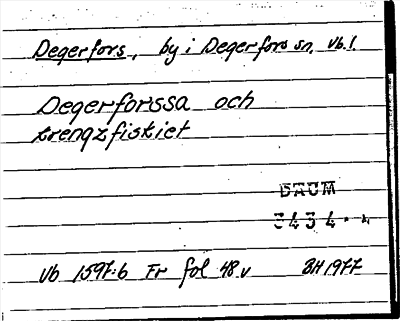 Degerfors, by i Degerfors sn, Vb.l.
Degerforssa och
trengzfiskiet
DAUM
3434
Vb 1597:6 Fr fol 48 v BH 1977